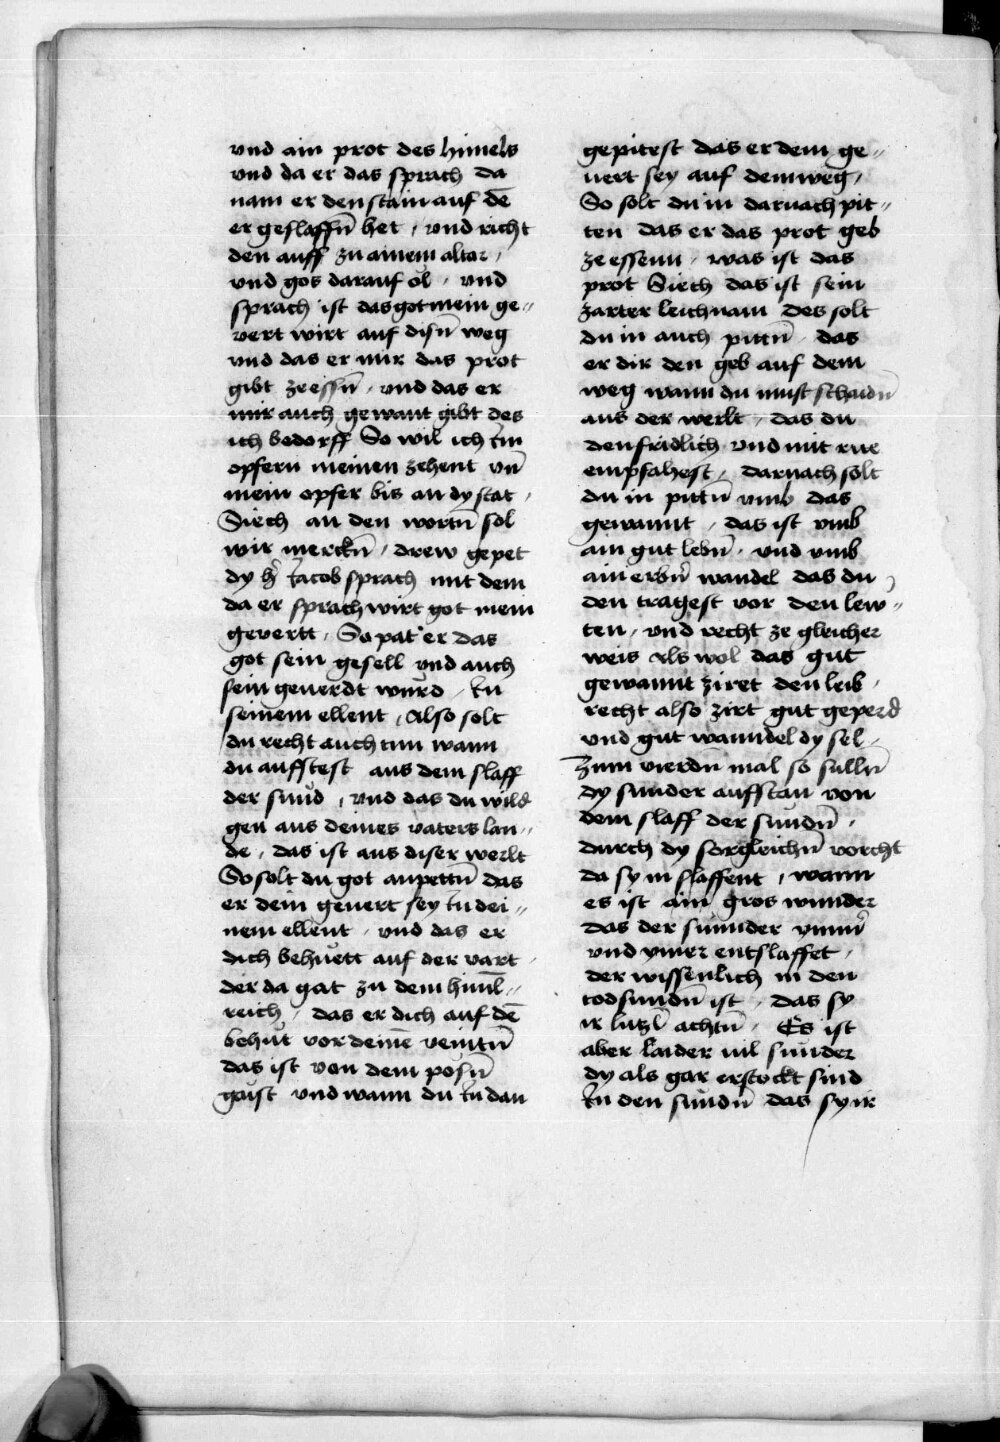 vnd ain prot des himels
vnd da er das sprach da
nam er den stain auf dē
er geslaffn̄ het , vnd richt
den auff zu ainem altar ,
vnd gos darauf öl , vnd
sprach ist das got mein ge„
vert wirt auf disn̄ weg
vnd das er mir das prot
gibt ze essn̄ , vnd das er
mir auch gewant gibt des
ich bedorff So wil ich im
opfern meinen zehent vn̄
mein opfer bis an dy stat ,
Siech an den wortn̄ sol
wir merckn̄ , drew gepet
dy h̄ Jacob sprach mit dem
da er sprach wirt got mein
gevertt , So pat er das
got sein gesell vnd auch
sein geuerdt wurd , In
seinem ellent , Also solt
du recht auch tun wann
du aufstest aus dem slaff
der sund , vnd das du wild
gen aus deines vaters lan„
de , das ist aus diser werlt
So solt du got anpettn̄ das
er dein geuert sey In dei„
nem ellent , vnd das er
dich behuett auf der vart ,
der da gat zu dem himl„
reich , das er dich auf dē
behut vor deinē veintn̄
das ist von dem posn̄
gaist vnd wann du In dan
gepitest das er dem ge„
uert sey auf dem weg ,
So solt du in darnach pit„
ten das er das prot geb
ze essenn , was ist das
prot Siech das ist sein
zarter leichnam des solt
du in auch pittn̄ , das
er dir den geb auf dem
weg wann du must schaidn̄
aus der werlt , das du
den fridlich vnd mit rue
empfahest , darnach solt
du in pittn̄ vmb das
gewannt , das ist vmb
ain gut lebn̄ , vnd vmb
ain erbn̄ wandel das du
den tragest vor den lew„
ten , vnd recht ze gleicher
weis als wol das gut
gewannt ziret den leib ,
recht also zirt gut geperd
vnd gut wanndel dy sel ,
Zum vierdn̄ mal so sulln̄
dy sunder aufstan von
dem slaff der sundn̄ ,
durch dy sorgleichn̄ vorcht
da sy in slaffent , wann
es ist ain gros wunder
das der sunnder ymm̄
vnd ymer entslaffet ,
der wissenlich in den
todsundn̄ ist , das sy
ir lutzl achtn̄ , Es ist
aber laider vil sunder
dy als gar erstockt sind
In den sundn̄ das sy ir